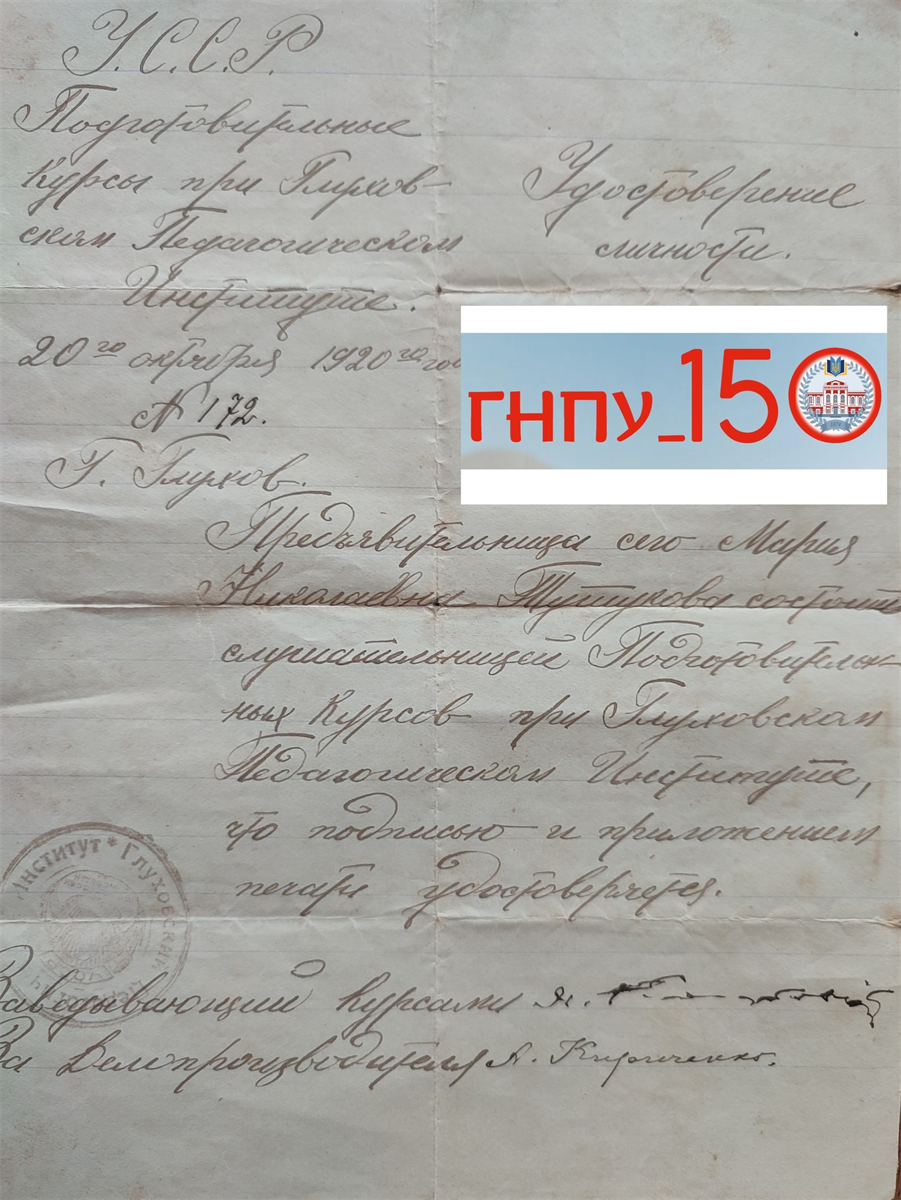 У.С.С.Р.
Подготовительные
Курсы при Глухов-
ском Педагогическом
Институте.
20го октября 1920го го
№ 172.
Г. Глухов.
Удостоверение
личности.
ГНПУ_150
Предъявительница сего Мария
Николаевна Тутукова состоит
слушательницей Подготовитель-
ных Курсов при Глуховском
Педагогическом Институте,
что подписью и приложением
печати удостоверяется.
Институт * Глуховский
Заведывающий Курсами
За Делопроизводителя А. Кириченко.